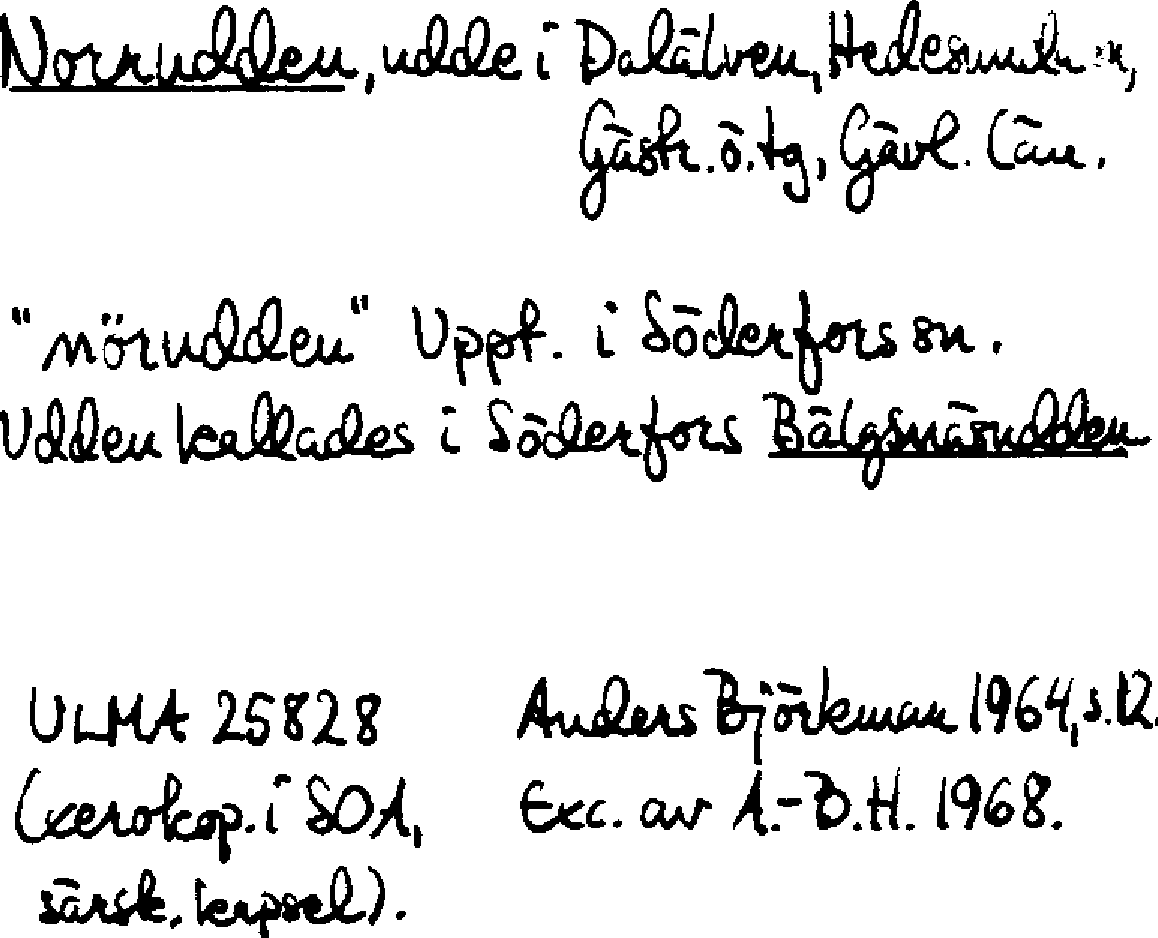 Norrudden, udde i Dalälven, Hedesunda sn,
Gästr. ö. tg, Gävl. län.
"nörudden" Uppt. i Söderfors sn.
Udden kallades i Söderfors Bälgsnäsudden
ULMA 25828 Anders Björkman 1964, s. 12.
(xerokop. i SOA, Exc. av A.-B.H. 1968.
särsk. kapsel).